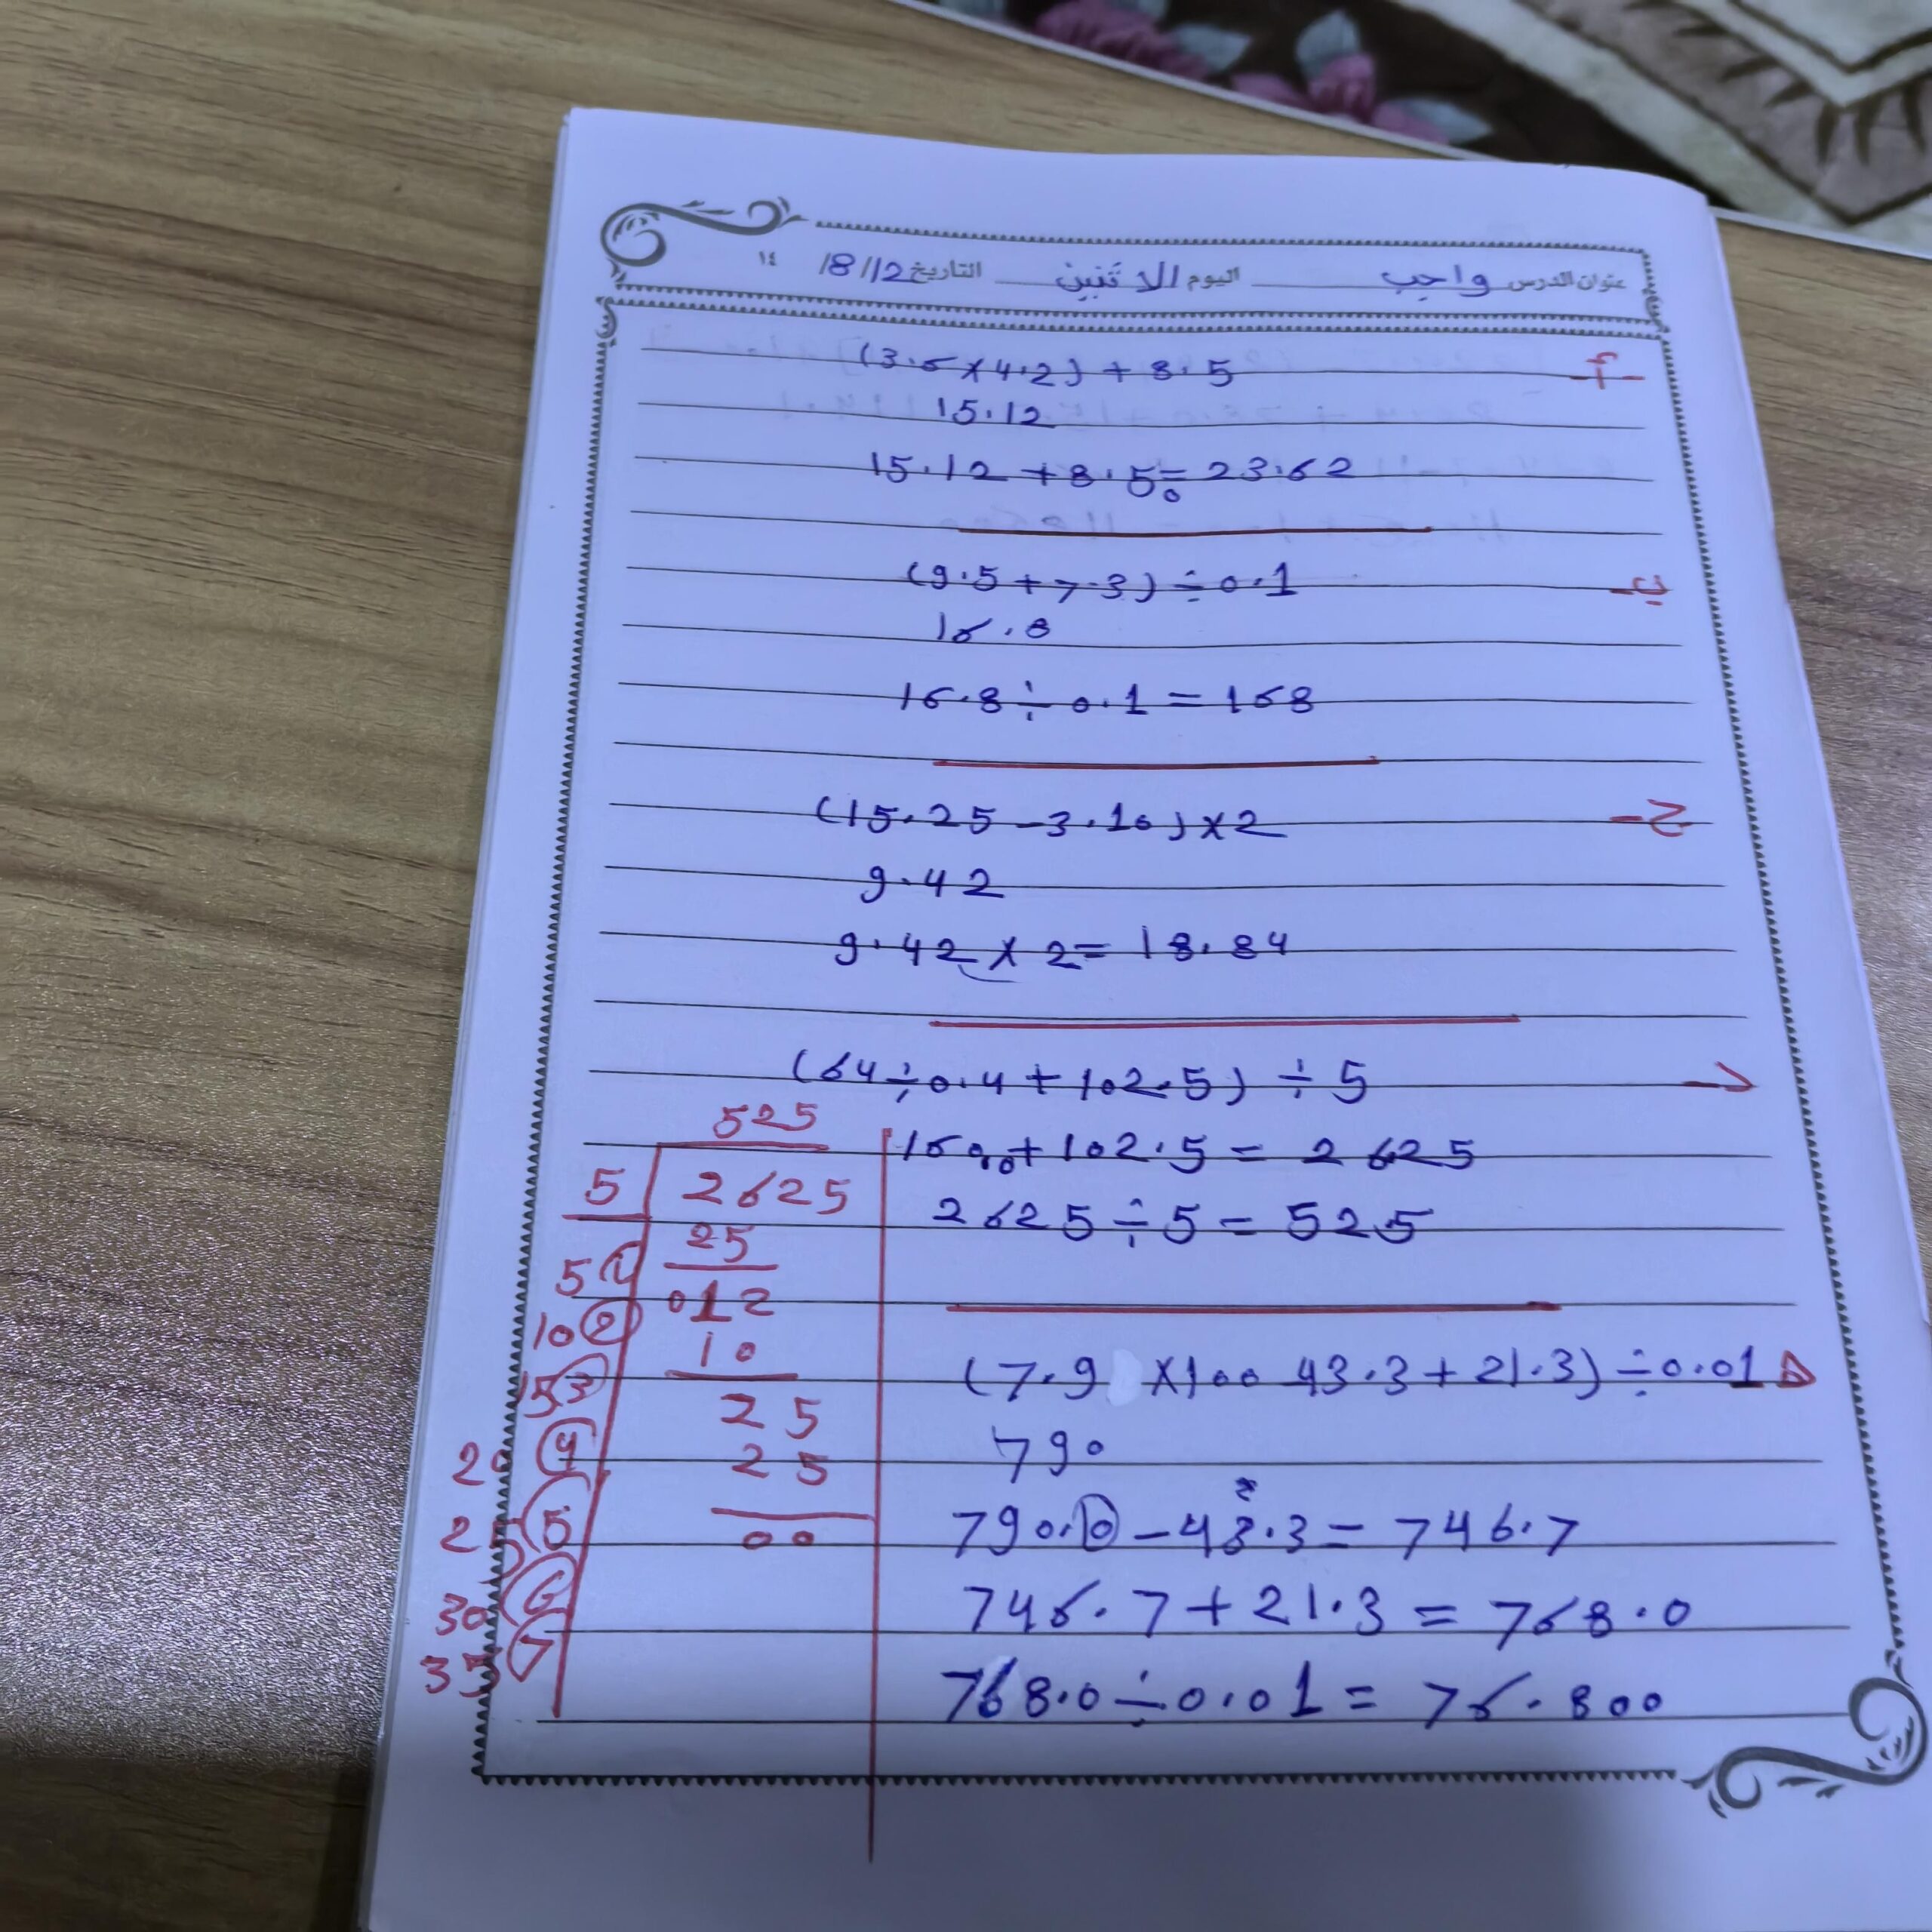 عنوان الدرس واجب اليوم الاثنين التاريخ 12/ 8/ ١٤
أ- (3.6 × 4.2) + 8.5
15.12
15.12 + 8.5 = 23.62
ب- (9.5 + 7.3) ÷ 0.1
16.8
16.8 ÷ 0.1 = 168
ج- (15.25 - 3.10) × 2
9.42
9.42 × 2 = 18.84
د (64 ÷ 0.4 + 102.5) ÷ 5
160.0 + 102.5 = 2625
2625 ÷ 5 = 525
525
5 2625
25
5 1
012
10 2
10
15 3
25
20 4
25
25 5
00
30 6
35 7
(7.9 ×100 43.3 + 21.3) ÷ 0.01 ه
790
790.0 - 43.3 = 746.7
746.7 + 21.3 = 768.0
768.0 ÷ 0.01 = 76.800